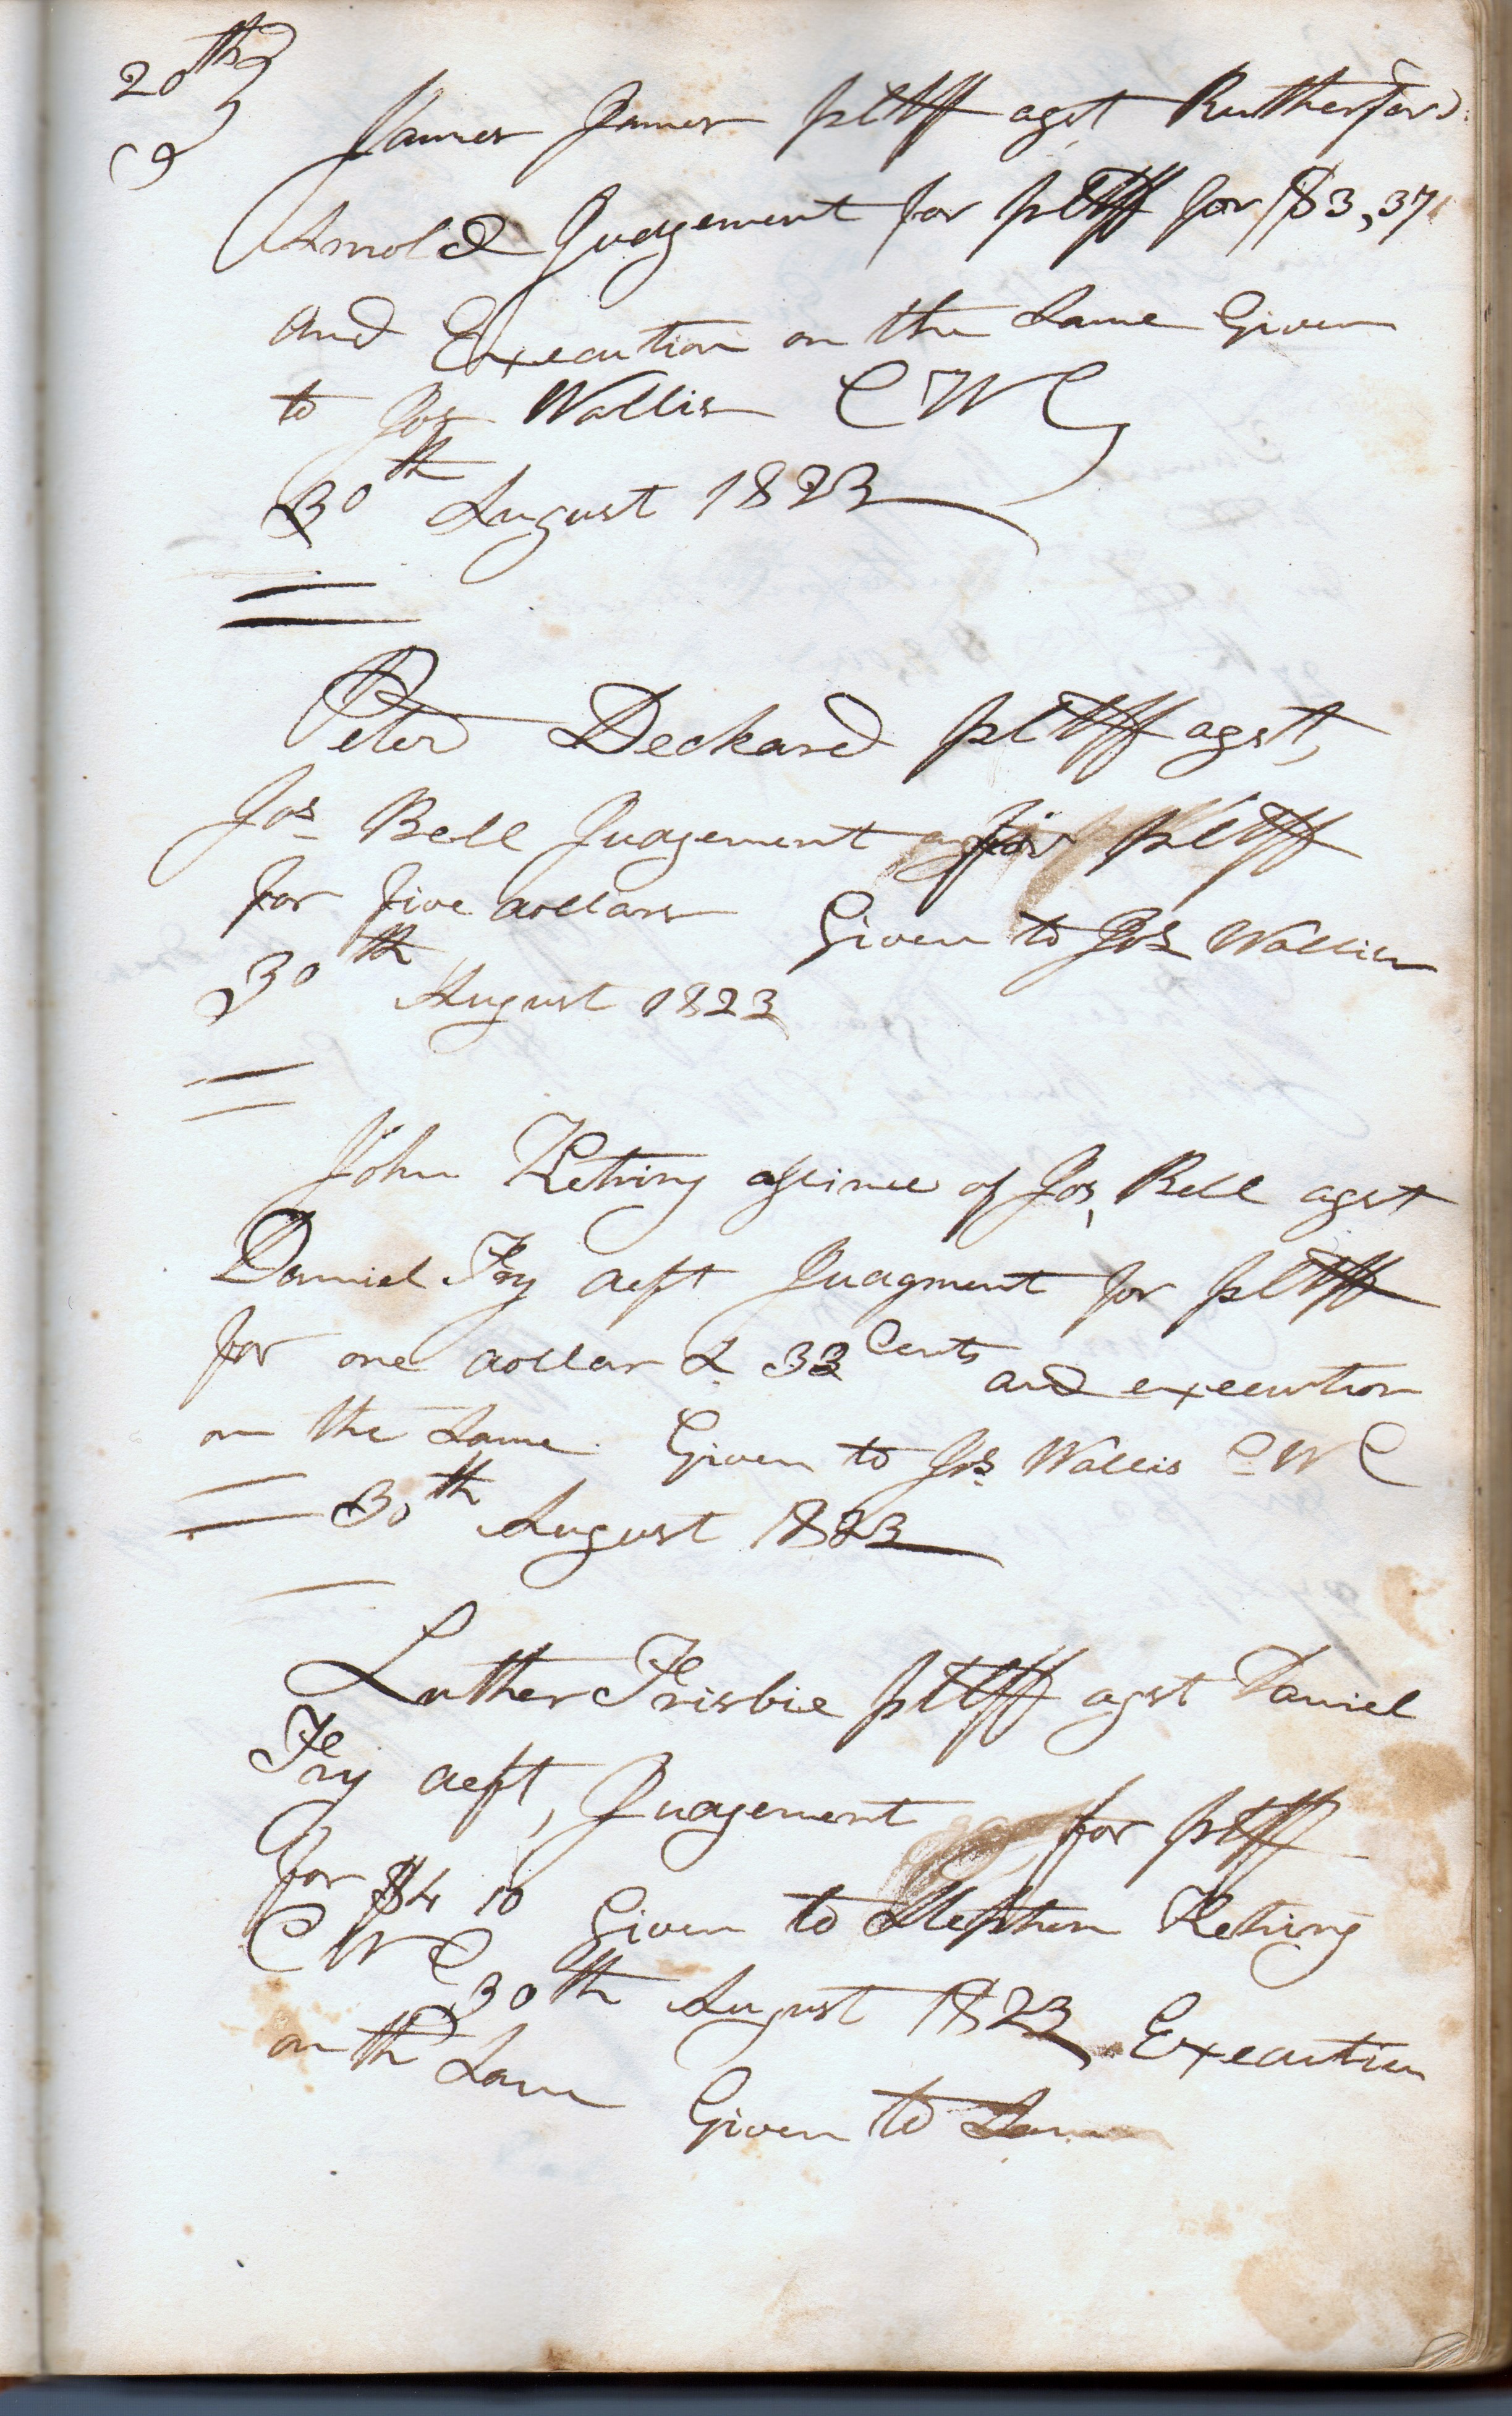 20th
James James pltff agst Rutherford
Arnold Judgement for pltff for $3,37
and Execution on the Same Given
to Jos Wallis C W C
30th August 1823
Peter Deckard pltff agst,
Jos Bell Judgement for pltff
for five dollars Given to Jos Wallis
30th August 1823
John Ketring assinee of Jos, Bell agst
Daniel Fry deft Judgment for pltff
for one dollar & 33 Cents and execution
on the Same Given to Jos Wallis C W C
30th August 1823
Luther Frisbie pltff agst Daniel
Fry deft, Judgement for pltff
for $4 10 Given to Stephen Ketring
C W C 30th August 1823 Execution
on th Sam Given to Sam